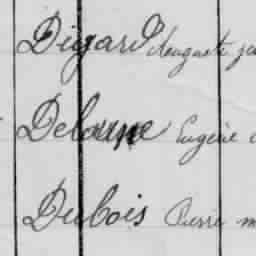 Digard Auguste
Delaune Eugène
Dubois Pierre